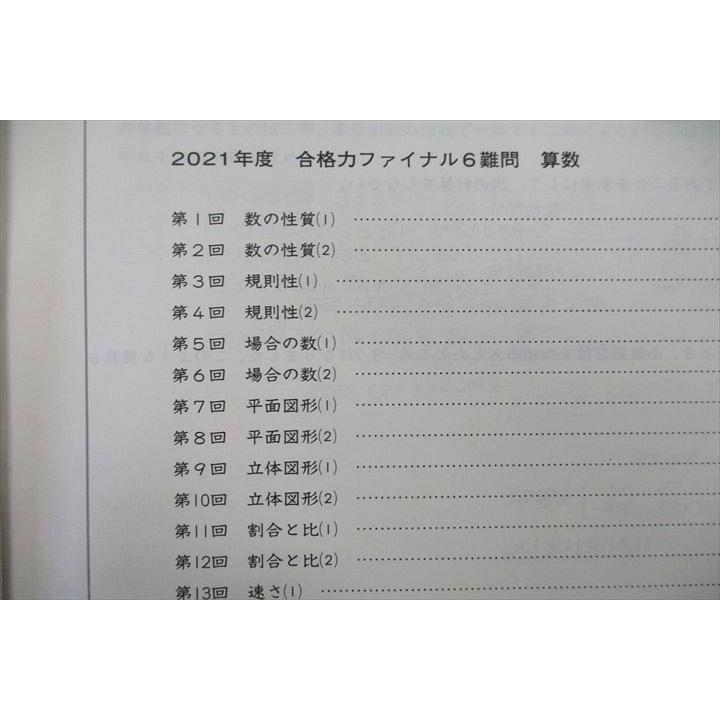 2021年度 合格力ファイナル6難問 算数
第1回 数の性質(1) ……………………………
第2回 数の性質(2) ……………………………
第3回 規則性(1) ……………………………
第4回 規則性(2) ……………………………
第5回 場合の数(1) ……………………………
第6回 場合の数(2) ……………………………
第7回 平面図形(1) ……………………………
第8回 平面図形(2) ……………………………
第9回 立体図形(1) ……………………………
第10回 立体図形(2) ……………………………
第11回 割合と比(1) ……………………………
第12回 割合と比(2) ……………………………
第13回 速さ(1) ……………………………